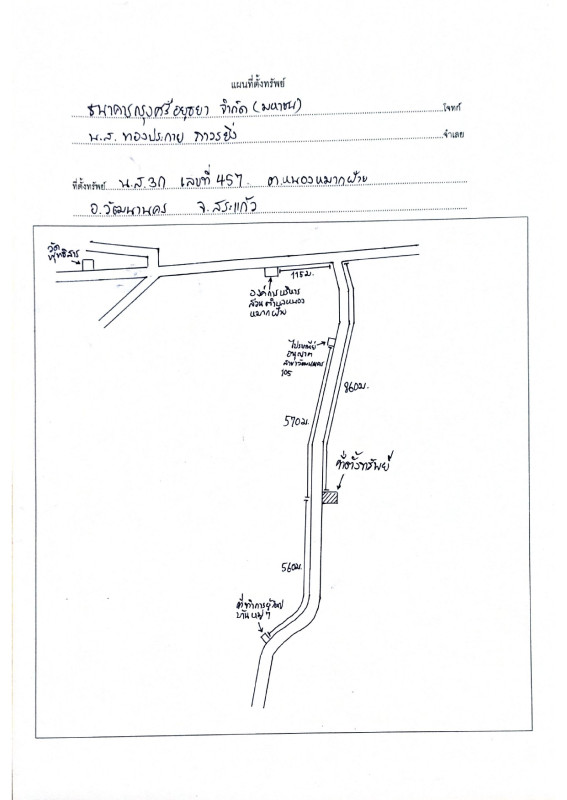 แผนที่ตั้งทรัพย์
ธนาคารกรุงศรีอยุธยา จำกัด (มหาชน) โจทก์
น.ส. ทองประกาย ถาวรยิ่ง จำเลย
ที่ตั้งทรัพย์ น.ส.3ก เลขที่ 457 ต.หนองหมากฝ้าย
อ.วัฒนานคร จ.สระแก้ว
วัด
พุทธิสาร
115ม.
องค์การบริหาร
ส่วนตำบลหนอง
หมากฝ้าย
ไปรษณีย์
อนุญาต
สาขาวัฒนานคร
105
860ม.
570ม.
ที่ตั้งทรัพย์
560ม.
ที่ทำการผู้ใหญ่
บ้านหมู่ 7